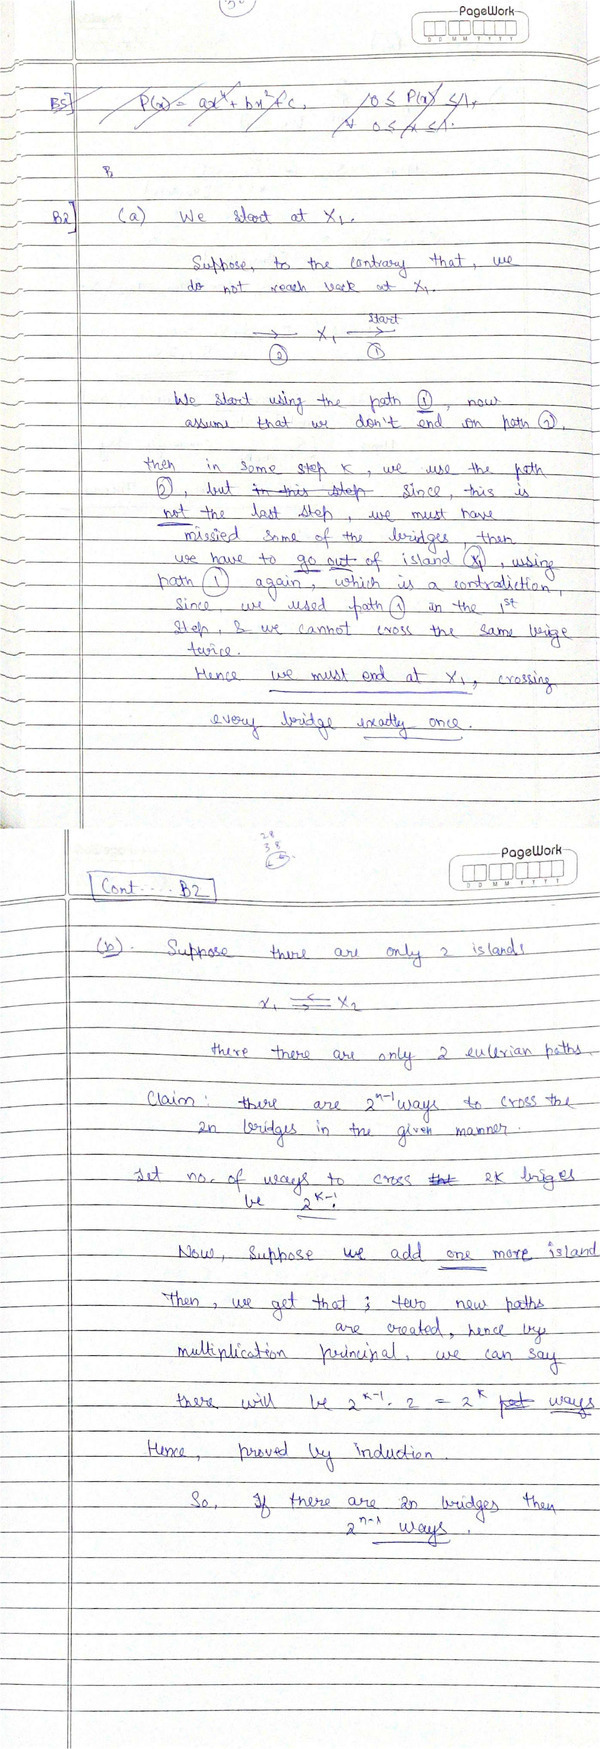 PageWork
D D M M Y Y Y Y
B5] P(x) = ax⁴ + bx² + c, 0 ≤ P(x) ≤ 1,
∀ 0 ≤ x ≤ 1.
B
B2] (a) We start at X₁.
Suppose, to the contrary that, we
do not reach back at X₁.
start
→ X₁ →
② ①
We start using the path ①, now
assume that we don't end on path ②,
then in some step K, we use the path
②, but in this step since, this is
not the last step, we must have
missied some of the bridges, then
we have to go out of island X₁, using
path ① again, which is a contradiction,
since, we used path ① in the 1st
step, & we cannot cross the same brige
twice.
Hence we must end at X₁, crossing
every bridge exactly once.
28
38
PageWork
D D M M Y Y Y Y
Cont.... B2
(b). Suppose there are only 2 islands
x₁ ⇄ x₂
there there are only 2 eulerian paths.
Claim: there are 2ⁿ⁻¹ ways to cross the
2n bridges in the given manner.
Let no. of ways to cross that 2K briges
be 2ᴷ⁻¹.
Now, suppose we add one more island
Then, we get that ; two new paths
are created, hence by
multiplication principal, we can say
there will be 2ᴷ⁻¹. 2 = 2ᴷ ways
Hence, proved by induction.
So, If there are 2n bridges then
2ⁿ⁻¹ ways.